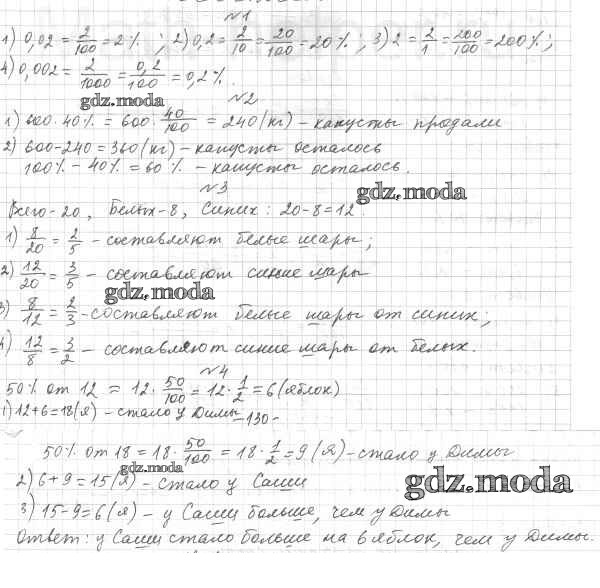 №1
1) 0,02 = 2/100 = 2% ; 2) 0,2 = 2/10 = 20/100 = 20% ; 3) 2 = 2/1 = 200/100 = 200% ;
4) 0,002 = 2/1000 = 0,2/100 = 0,2% .
gdz.moda
№2
1) 600 · 40% = 600 · 40/100 = 240 (кг) – капусты продали
2) 600 - 240 = 360 (кг) – капусты осталось
100% - 40% = 60% – капусты осталось.
№3
gdz.moda
Всего - 20, Белых - 8, Синих: 20 - 8 = 12.
1) 8/20 = 2/5 – составляют белые шары;
2) 12/20 = 3/5 – составляют синие шары
gdz.moda
3) 8/12 = 2/3 – составляют белые шары от синих;
4) 12/8 = 3/2 – составляют синие шары от белых.
№4
50% от 12 = 12 · 50/100 = 12 · 1/2 = 6 (яблок)
1) 12 + 6 = 18 (я) – стало у Димы
-130-
50% от 18 = 18 · 50/100 = 18 · 1/2 = 9 (я) – стало у Димы
gdz.moda
2) 6 + 9 = 15 (я) – стало у Саши
gdz.moda
3) 15 - 9 = 6 (я) – у Саши больше, чем у Димы
Ответ: у Саши стало больше на 6 яблок, чем у Димы.